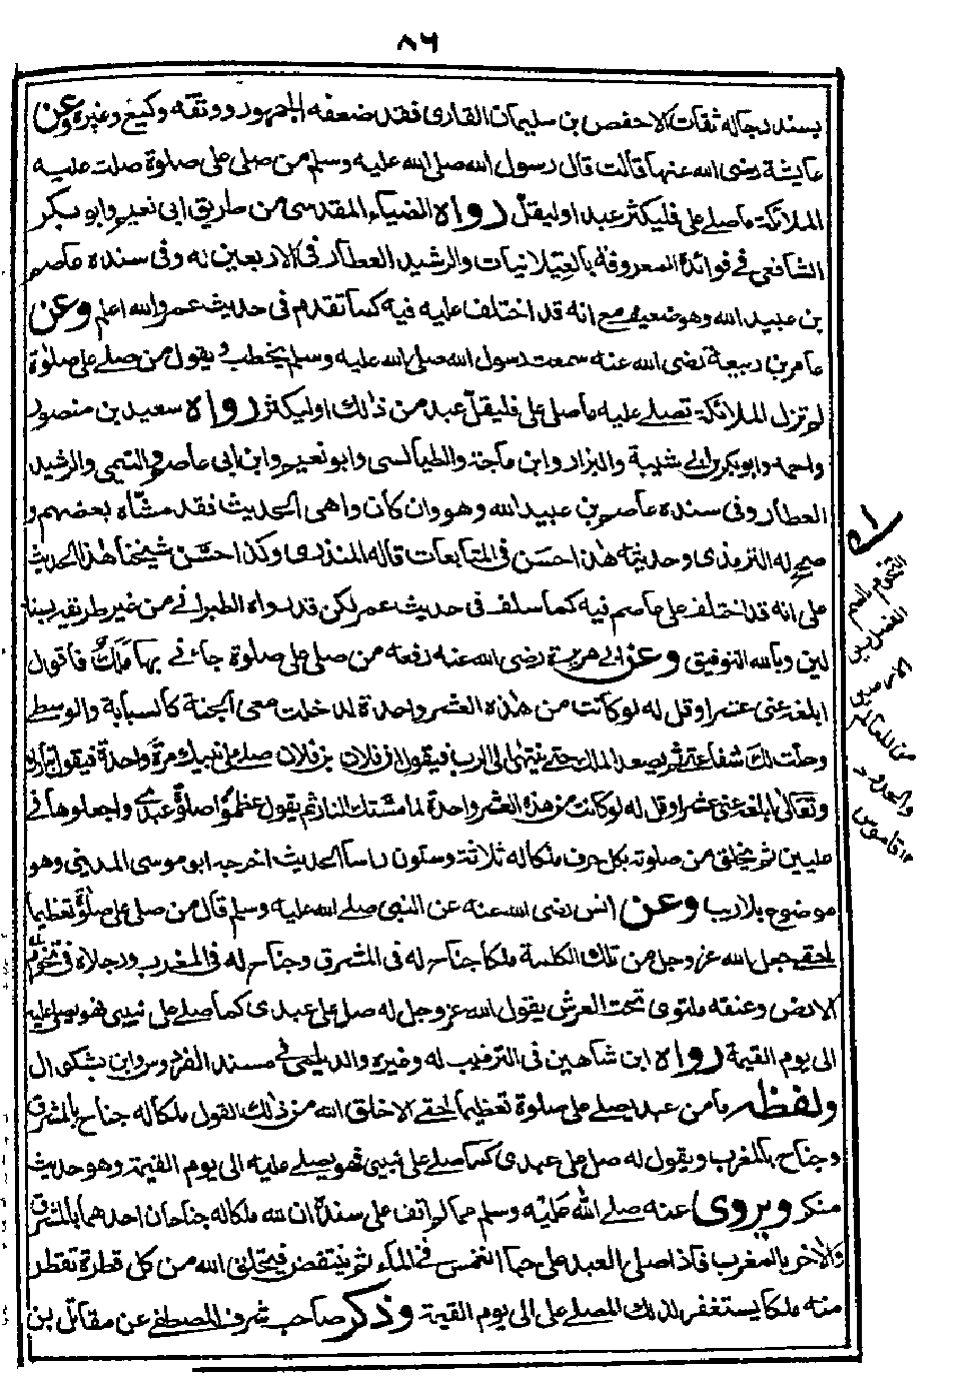 ٨٦
بسند رجاله ثقات الا حفص بن سليمان القاری فقد ضعفه الجمهور ووثقه وكيع وغيره وعن
عايشة رضی الله عنها قالت قال رسول الله صلی الله عليه وسلم من صلی علی صلوة صلت عليه
الملائكة ما صلے علی فليكثر عبد اوليقل رواه الضياء المقدسی من طريق ابی نعيم وابو بكر
الشافعی فے فوائده المعروفة بالغيلانيات والرشيد العطار فی الاربعين له وفی سنده عاصم
بن عبيد الله وهو ضعيف مع انه قد اختلف عليه فيه كما تقدم فی حديث عمر والله اعلم وعن
عامر بن ربيعة رضی الله عنه سمعت رسول الله صلی الله عليه وسلم يخطب ويقول من صلے علی صلوة
لم تزل الملائكة تصلے عليه ما صلی علی فليقل عبد من ذالك اوليكثر رواه سعيد بن منصور
واحمد وابو بكر بن ابی شيبة والبزار وابن ماجة والطيالسی وابو نعيم وابن ابی عاصم والتيمی والرشيد
العطار وفی سنده عاصم بن عبيد الله وهو وان كان واهی الحديث فقد مشاه بعضهم و
صحح له الترمذی وحديثه هذا حسن فی المتابعات قاله المنذری وكذا حسن شيخنا هذا الحديث
علی انه قد اختلف علی عاصم فيه كما سلف فی حديث عمر لكن قد رواه الطبرانے من غير طريقه بسند
لين وبالله التوفيق وعن ابی هريرة رضی الله عنه رفعه من صلی علی صلوة جائنے بها ملك فاقول
ابلغه عنی عشرا وقل له لو كانت من هذه العشر واحدة لدخلت معی الجنة كالسبابة والوسطے
وحلت لك شفاعتے ثم يصعد الملك حتے ينتهی الی الرب فيقول ان فلان بن فلان صلے علی نبيك مرة واحدة فيقول تبارك
وتعالی ابلغه عنی عشرا وقل له لو كانت من هذه العشر واحدة لما مستك النار ثم يقول عظموا صلوة عبدی واجعلوها فے
عليين ثم يخلق من صلوته بكل حرف ملكا له ثلاثة وستون راسا الحديث اخرجه ابو موسی المدينی وهو
موضوع بلا ريب وعن انس رضی الله عنه عن النبی صلے الله عليه وسلم قال من صلی علی صلوة تعظيما
لحقے جعل الله عز وجل من تلك الكلمة ملكا جناح له فی المشرق وجناح له فی المغرب ورجلاه فی تخوم
الارض وعنقه ملتوی تحت العرش يقول الله عز وجل له صل علی عبدی كما صلے علی نبيی فهو يصلی عليه
الی يوم القيمة رواه ابن شاهين فی الترغيب له وغيره والديلمی فے مسند الفردوس وابن بشكوال
ولفظه ما من عبد يصلے علی صلوة تعظيما لحقے الا خلق الله من ذلك القول ملكا له جناح بالمشرق
وجناح بالمغرب ويقول له صل علی عبدی كما صلے علی نبيی فهو يصلے عليه الی يوم القيمة وهو حديث
منكر ويروی عنه صلے الله عليه وسلم مما لم اقف علی سنده ان لله ملكا له جناحان احدهما بالمشرق
والاخر بالمغرب فاذا صلی العبد علی حبا انغمس فے الماء ثم ينتفض فيخلق الله من كل قطرة تقطر
منه ملكا يستغفر لذلك المصلے علی الی يوم القيمة وذكر صاحب شرف المصطفے عن مقاتل بن
التخوم بالضم
الفصل بين
الارضين
من المعالم
والحدود
١٢ قاموس